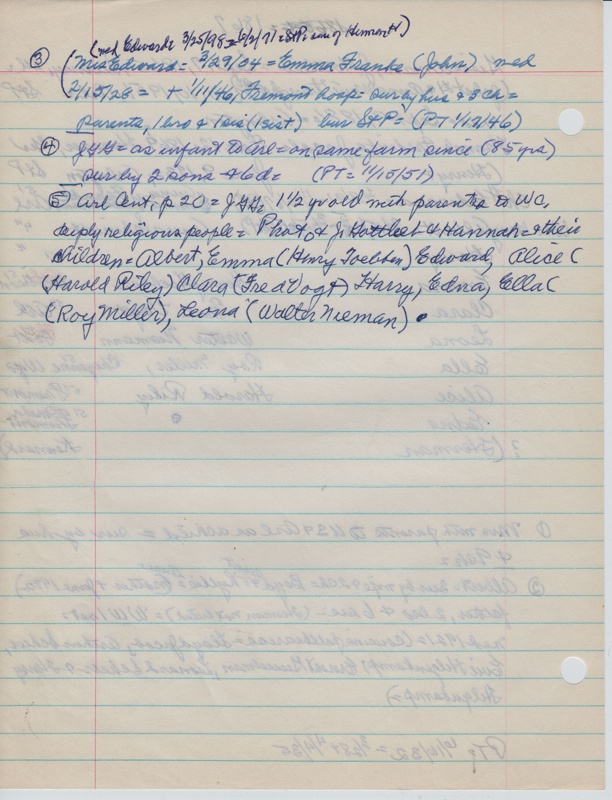 (md Edward= 3/25/98 = 6/2/71 = StP
③ (Mrs Edward = 3/29/04 = Emma Franke (John) md
2/15/28 = + 1/11/46, Fremont hosp = sur by hus & 3 ch =
parents, 1 bro & 1 sis (1 sist) bur St P = (PT 1/12/46)
④ JGG = as infant to Arl = on same farm since (85 yrs)
sur by 2 sons & 6 d = (PT = 11/15/51)
⑤ Arl Cent, p 20 = JGG, 1 1/2 yr old with parents to WC,
deeply religious people = Phot of J. Gottlieb & Hannah = & their
children = Albert, Emma (Henry Toebben) Edward, Alice (
(Harold Riley) Clara (Fred Vogt) Harry, Edna, Ella (
(Roy Miller), Leona (Walter Nieman) .